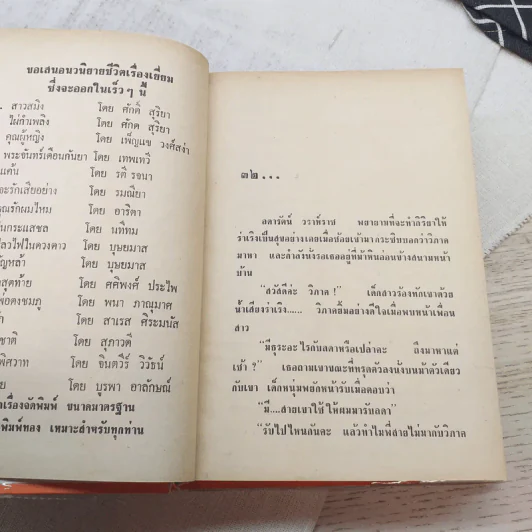 ขอเสนอนวนิยายชีวิตเรื่องเยี่ยม
ซึ่งจะออกในเร็ว ๆ นี้
สาวสมิง โดย ศักดิ์ สุริยา
ไผ่กำเพลิง โดย ศักดิ์ สุริยา
คุณผู้หญิง โดย เพ็ญแข วงศ์สง่า
พระจันทร์เดือนกันยา โดย เทพเทวี
แค้น โดย รติ รจนา
จะรักเสียอย่าง โดย รมณียา
คุณรักผมไหม โดย อาริตา
กระแสชล โดย นทีทม
เปลวไฟในดวงดาว โดย บุษยมาส
โดย บุษยมาส
สุดท้าย โดย ศศิพงศ์ ประไพ
โดย พนา ภาณุมาศ
โดย สาเรส ศิระมนัส
ชาติ โดย สุภาวดี
พิศวาท โดย จินตวีร์ วิวัธน์
โดย บูรพา อาลักษณ์
เรื่องจัดพิมพ์ ขนาดมาตรฐาน
พิมพ์ทอง เหมาะสำหรับทุกท่าน
๓๒...
ลดารัตน์ วราห์ราช พยายามที่จะทำกิริยาให้
ร่าเริงเป็นสุขอย่างเคยเมื่อน้อยเข้ามากระซิบบอกว่าวิภาค
มาหา และกำลังนั่งรอเธออยู่ที่ม้าหินอ่อนข้างสนามหน้า
บ้าน
"สวัสดีค่ะ วิภาค !" เด็กสาวร้องทักเขาด้วย
น้ำเสียงร่าเริง..... วิภาคยิ้มอย่างดีใจเมื่อพบหน้าเพื่อน
สาว
"มีธุระอะไรกับลดาหรือเปล่าคะ ถึงมาหาแต่
เช้า ?" เธอถามเขาขณะที่ทรุดตัวลงนั่งบนม้าตัวเดียว
กับเขา เด็กหนุ่มพยักหน้ารับเมื่อตอบว่า
"มี....สายเขาใช้ให้ผมมารับลดา"
"รับไปไหนกันคะ แล้วทำไมพี่สายไม่มากับวิภาค